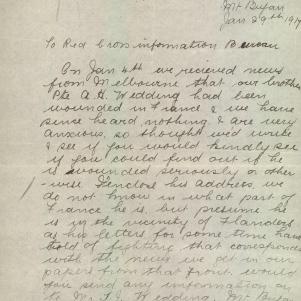 Mt Bryan
Jan 29th 1917
To Red Cross information Bureau
On Jan 4th we recieved news
from Melbourne that our brother
Pte A. H. Wedding had been
wounded in France & we have
since heard nothing & are very
anxious, so thought we'd write
& see if you would kindly see
if you could find out if he
is wounded seriously or other
-wise I enclose his address, we
do not know in what part of
France he is, but presume he
is in the vicinity of Flanders
as his letters for some time have
told of fighting that corresponds
with the news we get in our
papers from that front. would
you send any information
to Mr Wedding, Mt Bryan